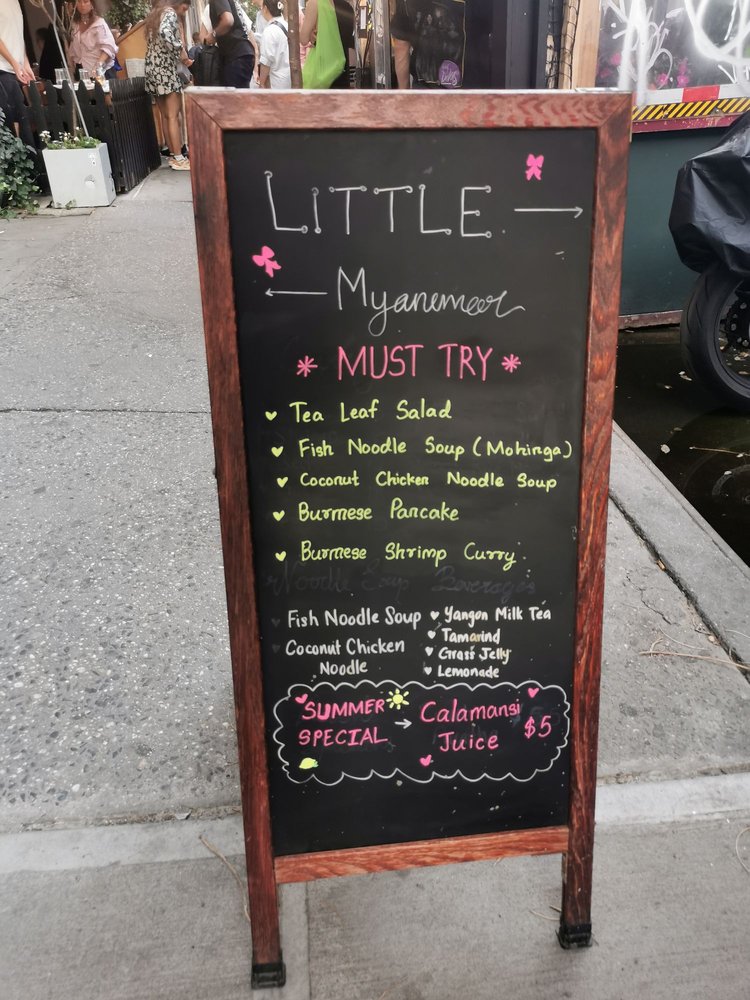 LITTLE
Myanmeer
* MUST TRY *
Tea Leaf Salad
Fish Noodle Soup (Mohinga)
Coconut Chicken Noodle Soup
Burmese Pancake
Burmese Shrimp Curry
Noodle Soup Beverages
Fish Noodle Soup
Coconut Chicken
Noodle
Yangon Milk Tea
Tamarind
Grass Jelly
Lemonade
SUMMER
SPECIAL
Calamansi
Juice
$5